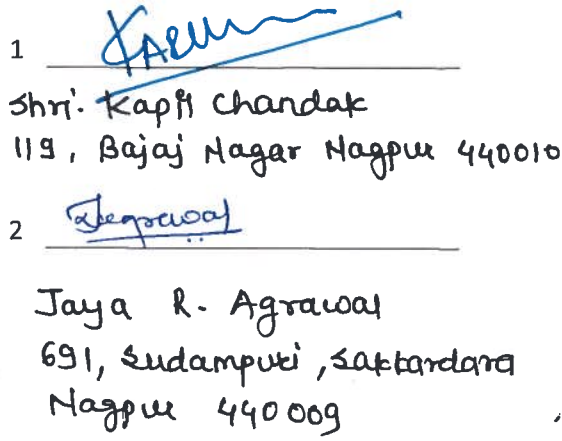 1
Shri. Kapil Chandak
119, Bajaj Nagar Nagpur 440010
2 Jagrawal
Jaya R. Agrawal
691, Sudampuri, Sakkardara
Nagpur 440009